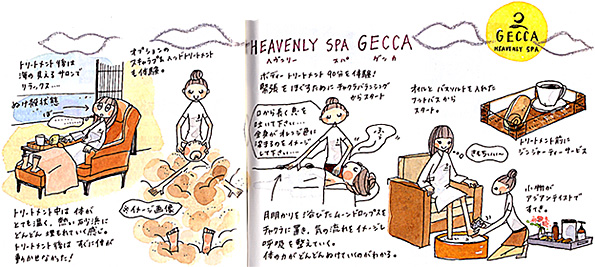 GECCA
HEAVENLY SPA
HEAVENLY SPA GECCA
ヘヴンリー スパ ゲッカ
オプションの
スキャラプ&ヘッドトリートメント
も体験。
トリートメント後は
海の見えるサロンで
リラックス…
ぬけ殻状態
ぽ〜
ボディートリートメント90分を体験!
緊張をほぐすためにチャクラバランシング
からスタート
口から長く息を
吐いて下さい…
全身がオレンジ色に
染まるのをイメージ
して下さい…
オイルとバスソルトを入れた
フットバスから
スタート。
トリートメント前に
ジンジャーティーサービス
きもちいい〜
小物が
アジアンテイストで
すてき。
※イメージ画像
トリートメント中は体が
とても温く、熱い砂浜に
どんどん埋もれていく感じ。
トリートメント後はすぐに体が
動かせなかった!
月明かりを浴びたムーンドロップスを
チャクラに置き、気の流れをイメージし
呼吸を整えていく。
体の力がどんどんぬけていくのがわかる。